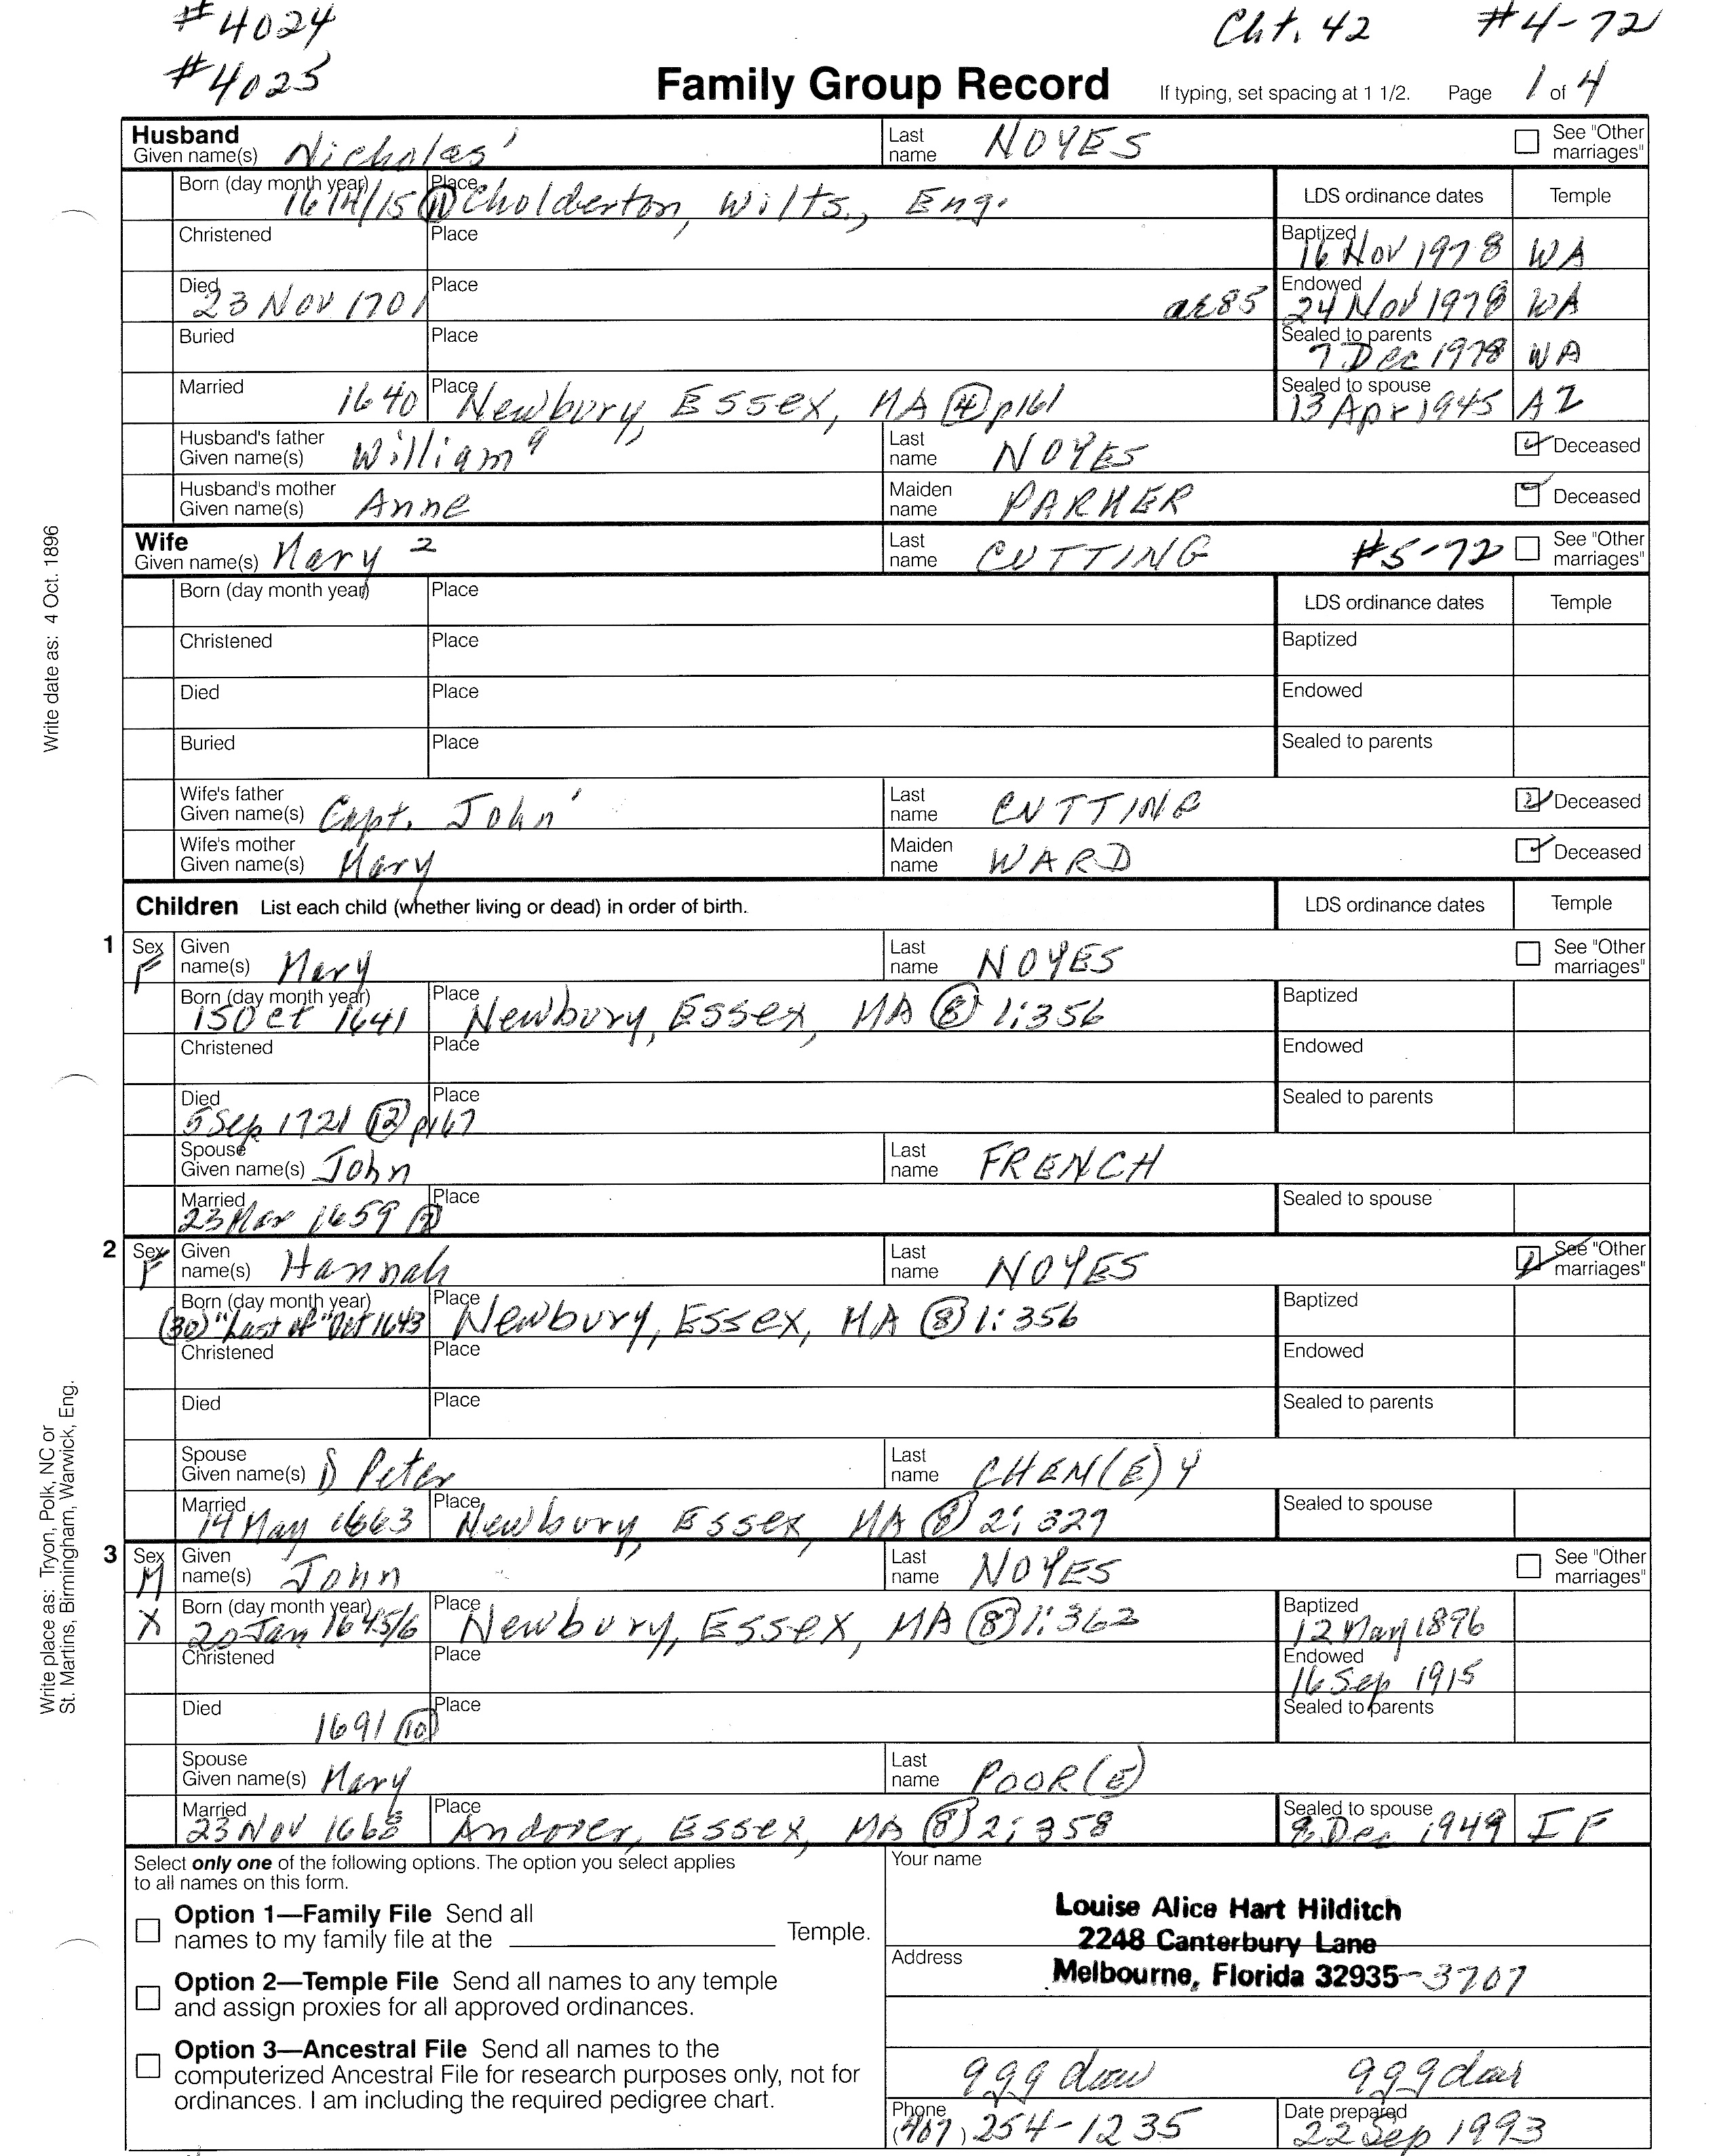 #4024 Cht. 42 #4-72
#4025
Family Group Record If typing, set spacing at 1 1/2. Page 1 of 4
Husband
Given name(s) Nicholas¹ Last name NOYES See "Other marriages"
Born (day month year) 1614/15 (11) Place Choldberton, Wilts., Eng. LDS ordinance dates Temple
Christened Place Baptized 16 Nov 1978 WA
Died 23 Nov 1701 Place ae85 Endowed 24 Nov 1978 WA
Buried Place Sealed to parents 7 Dec 1978 WA
Married 1640 Place Newbury, Essex, MA (4) p161 Sealed to spouse 13 Apr 1945 AZ
Husband's father Given name(s) William Last name NOYES Deceased
Husband's mother Given name(s) Anne Maiden name PARKER Deceased
Wife
Given name(s) Mary 2 Last name CUTTING #5-72 See "Other marriages"
Born (day month year) Place LDS ordinance dates Temple
Christened Place Baptized
Died Place Endowed
Buried Place Sealed to parents
Wife's father Given name(s) Capt. John¹ Last name CUTTING Deceased
Wife's mother Given name(s) Mary Maiden name WARD Deceased
Children List each child (whether living or dead) in order of birth. LDS ordinance dates Temple
1 Sex F Given name(s) Mary Last name NOYES See "Other marriages"
Born (day month year) 15 Oct 1641 Place Newbury, Essex, MA (8) 1:356 Baptized
Christened Place Endowed
Died 5 Sep 1721 (12) p167 Place Sealed to parents
Spouse Given name(s) John Last name FRENCH
Married 23 Mar 1659 Place Sealed to spouse
2 Sex F Given name(s) Hannah Last name NOYES See "Other marriages"
Born (day month year) (30) "Last of" Oct 1643 Place Newbury, Essex, MA (8) 1:356 Baptized
Christened Place Endowed
Died Place Sealed to parents
Spouse Given name(s) Peter Last name CHEN(E)Y
Married 14 May 1663 Place Newbury, Essex, MA (8) 2:329 Sealed to spouse
3 Sex M Given name(s) John Last name NOYES See "Other marriages"
X Born (day month year) 20 Jan 1645/6 Place Newbury, Essex, MA (8) 1:362 Baptized 12 May 1896
Christened Place Endowed 16 Sep 1915
Died 1691 (10) Place Sealed to parents
Spouse Given name(s) Mary Last name POOR(E)
Married 23 Nov 1668 Place Andover, Essex, MA (8) 2:358 Sealed to spouse 9 Dec 1949 IF
Select only one of the following options. The option you select applies
to all names on this form.
Option 1—Family File Send all
names to my family file at the Temple.
Option 2—Temple File Send all names to any temple
and assign proxies for all approved ordinances.
Option 3—Ancestral File Send all names to the
computerized Ancestral File for research purposes only, not for
ordinances. I am including the required pedigree chart.
Your name
Louise Alice Hart Hilditch
2248 Canterbury Lane
Address
Melbourne, Florida 32935-3707
999 999
Phone (407) 254-1235 Date prepared 22 Sep 1993
Write date as: 4 Oct. 1896
Write place as: Tryon, Polk, NC or
St. Martins, Birmingham, Warwick, Eng.